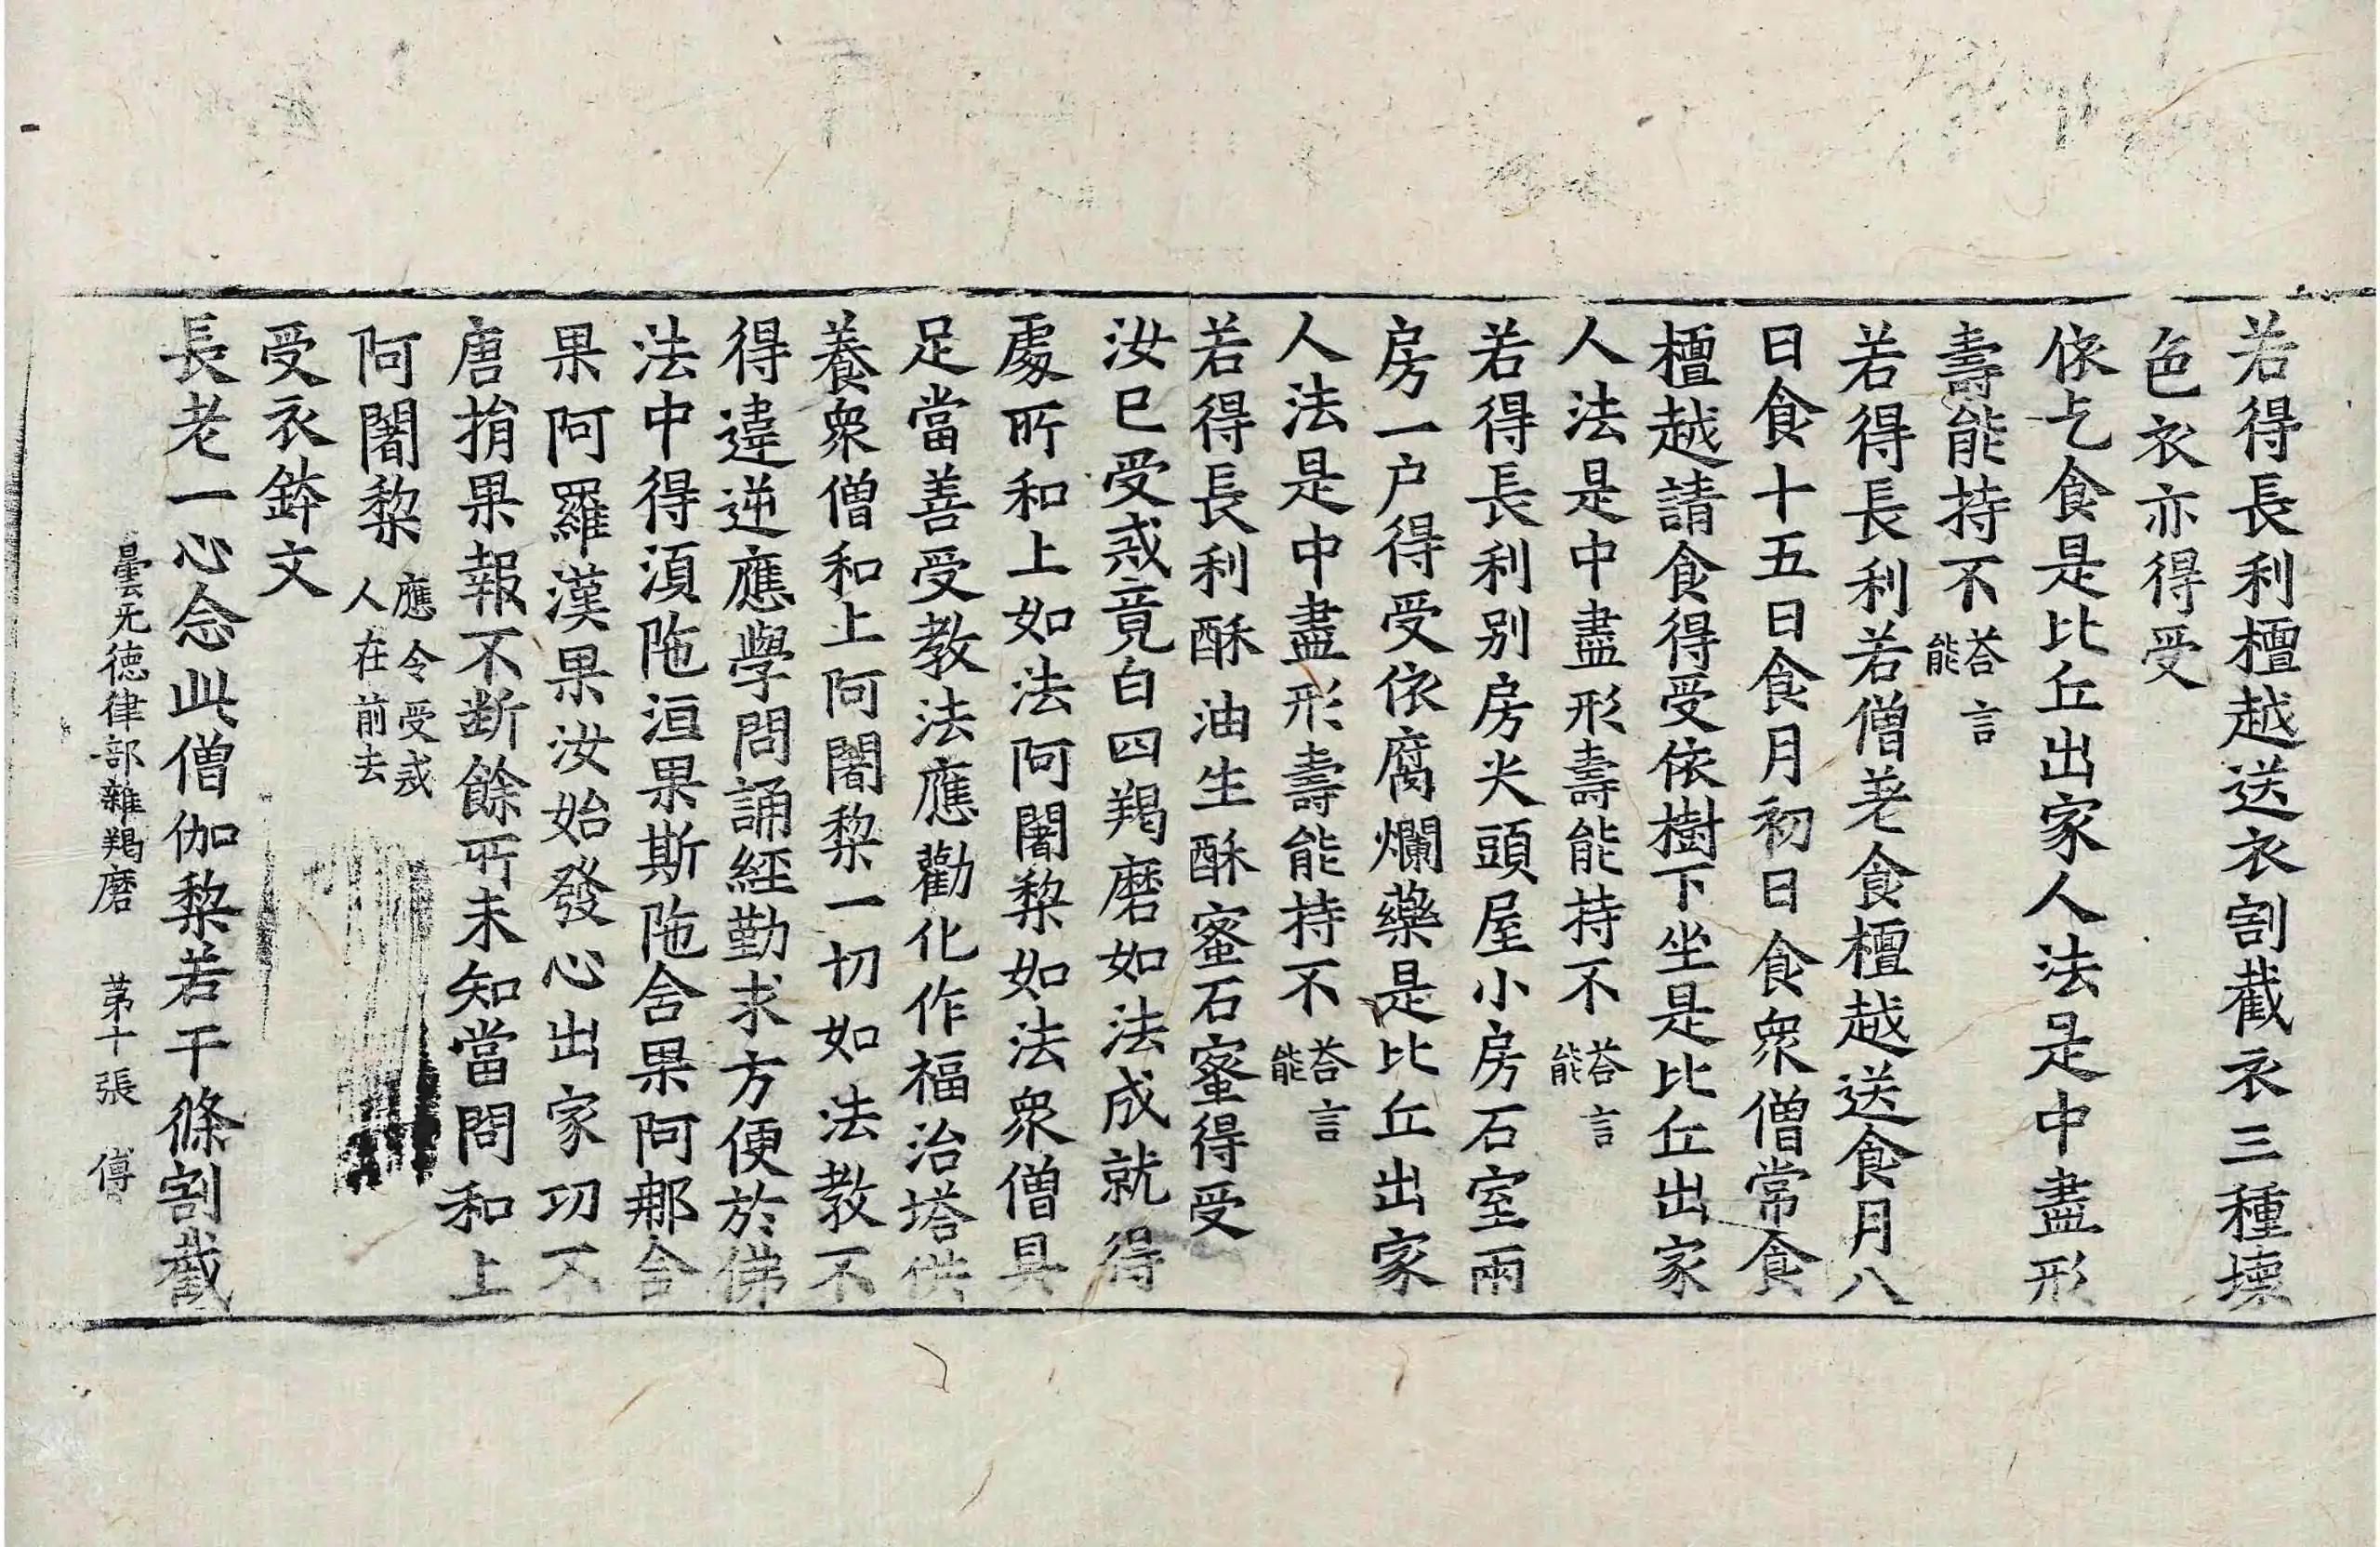 若得長利檀越送衣割截衣三種壞
色衣亦得受
依乞食是比丘出家人法是中盡形
壽能持不答言能
若得長利若僧差食檀越送食月八
日食十五日食月初日食衆僧常食
檀越請食得受依樹下坐是比丘出家
人法是中盡形壽能持不答言能
若得長利別房尖頭屋小房石室兩
房一户得受依腐爛藥是比丘出家
人法是中盡形壽能持不答言能
若得長利酥油生酥蜜石蜜得受
汝已受戒竟白四羯磨如法成就得
處所和上如法阿闍梨如法衆僧具
足當善受教法應勸化作福治塔供
養衆僧和上阿闍梨一切如法教不
得違逆應學問誦經勤求方便於佛
法中得湏陁洹果斯陁含果阿那含
果阿羅漢果汝始發心出家功不
唐捐果報不断餘所未知當問和上
阿闍梨應令受戒人在前去
受衣鉢文
長老一心念此僧伽梨若干條割截
曇无德律部雜羯磨 苐十張 傅